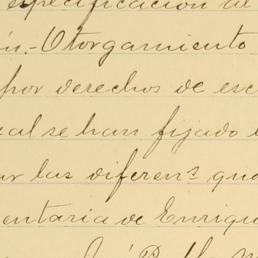 especificación de
ón.-Otorgamiento
por derechos de esc
ual se han fijado
ar las diferen.s que
entaria de Enriqu